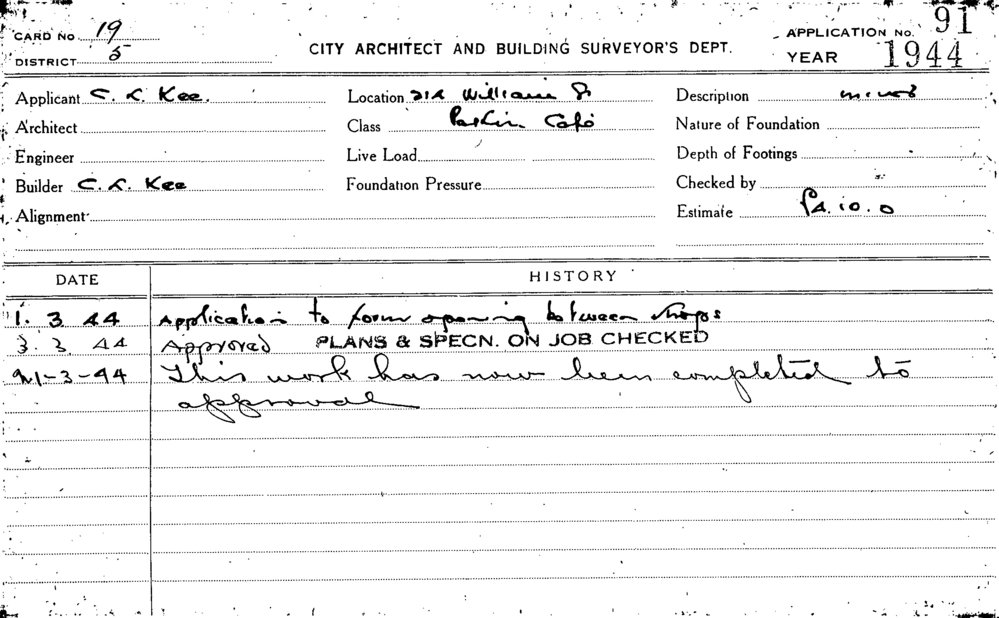 CARD NO 19
DISTRICT 5
CITY ARCHITECT AND BUILDING SURVEYOR'S DEPT.
APPLICATION NO. 91
YEAR 1944
Applicant C. K. Kee.
Location 212 William St
Description minor
Architect
Class Café
Nature of Foundation
Engineer
Live Load
Depth of Footings
Builder C. K. Kee
Foundation Pressure
Checked by
Alignment
Estimate £4.10.0
DATE HISTORY
1. 3 44 Application to form opening between shops
3. 3. 44 Approved PLANS & SPECN. ON JOB CHECKED
21-3-44 This work has now been completed to
approval